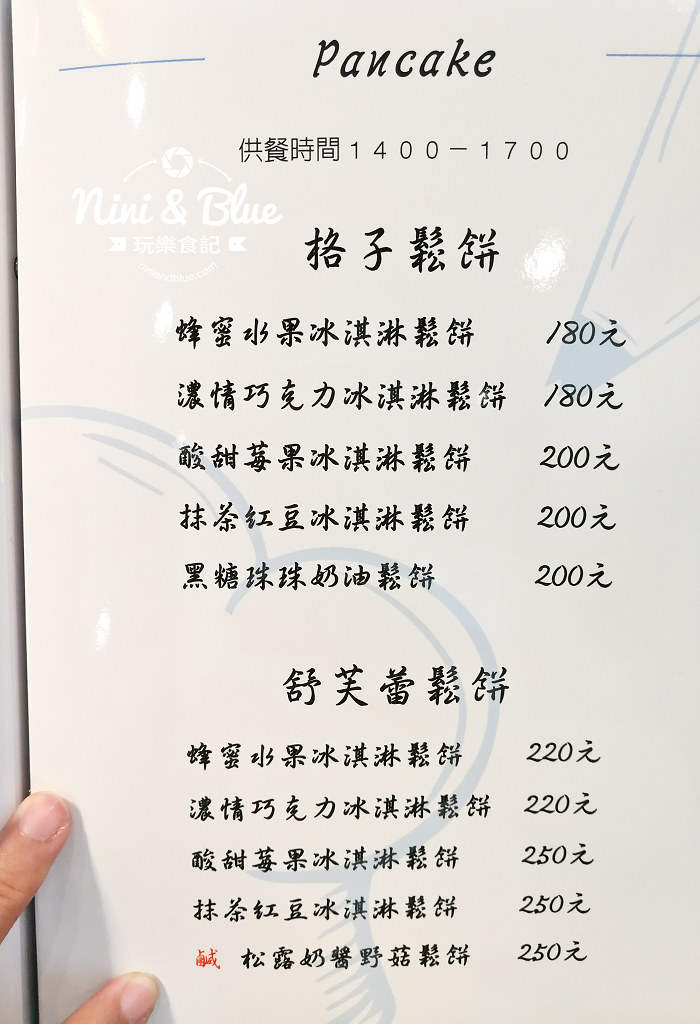 Pancake
供餐時間1400－1700
Nini & Blue
玩樂食記
niniandblue.com
格子鬆餅
蜂蜜水果冰淇淋鬆餅 180元
濃情巧克力冰淇淋鬆餅 180元
酸甜莓果冰淇淋鬆餅 200元
抹茶紅豆冰淇淋鬆餅 200元
黑糖珠珠奶油鬆餅 200元
舒芙蕾鬆餅
蜂蜜水果冰淇淋鬆餅 220元
濃情巧克力冰淇淋鬆餅 220元
酸甜莓果冰淇淋鬆餅 250元
抹茶紅豆冰淇淋鬆餅 250元
鹹 松露奶醬野菇鬆餅 250元